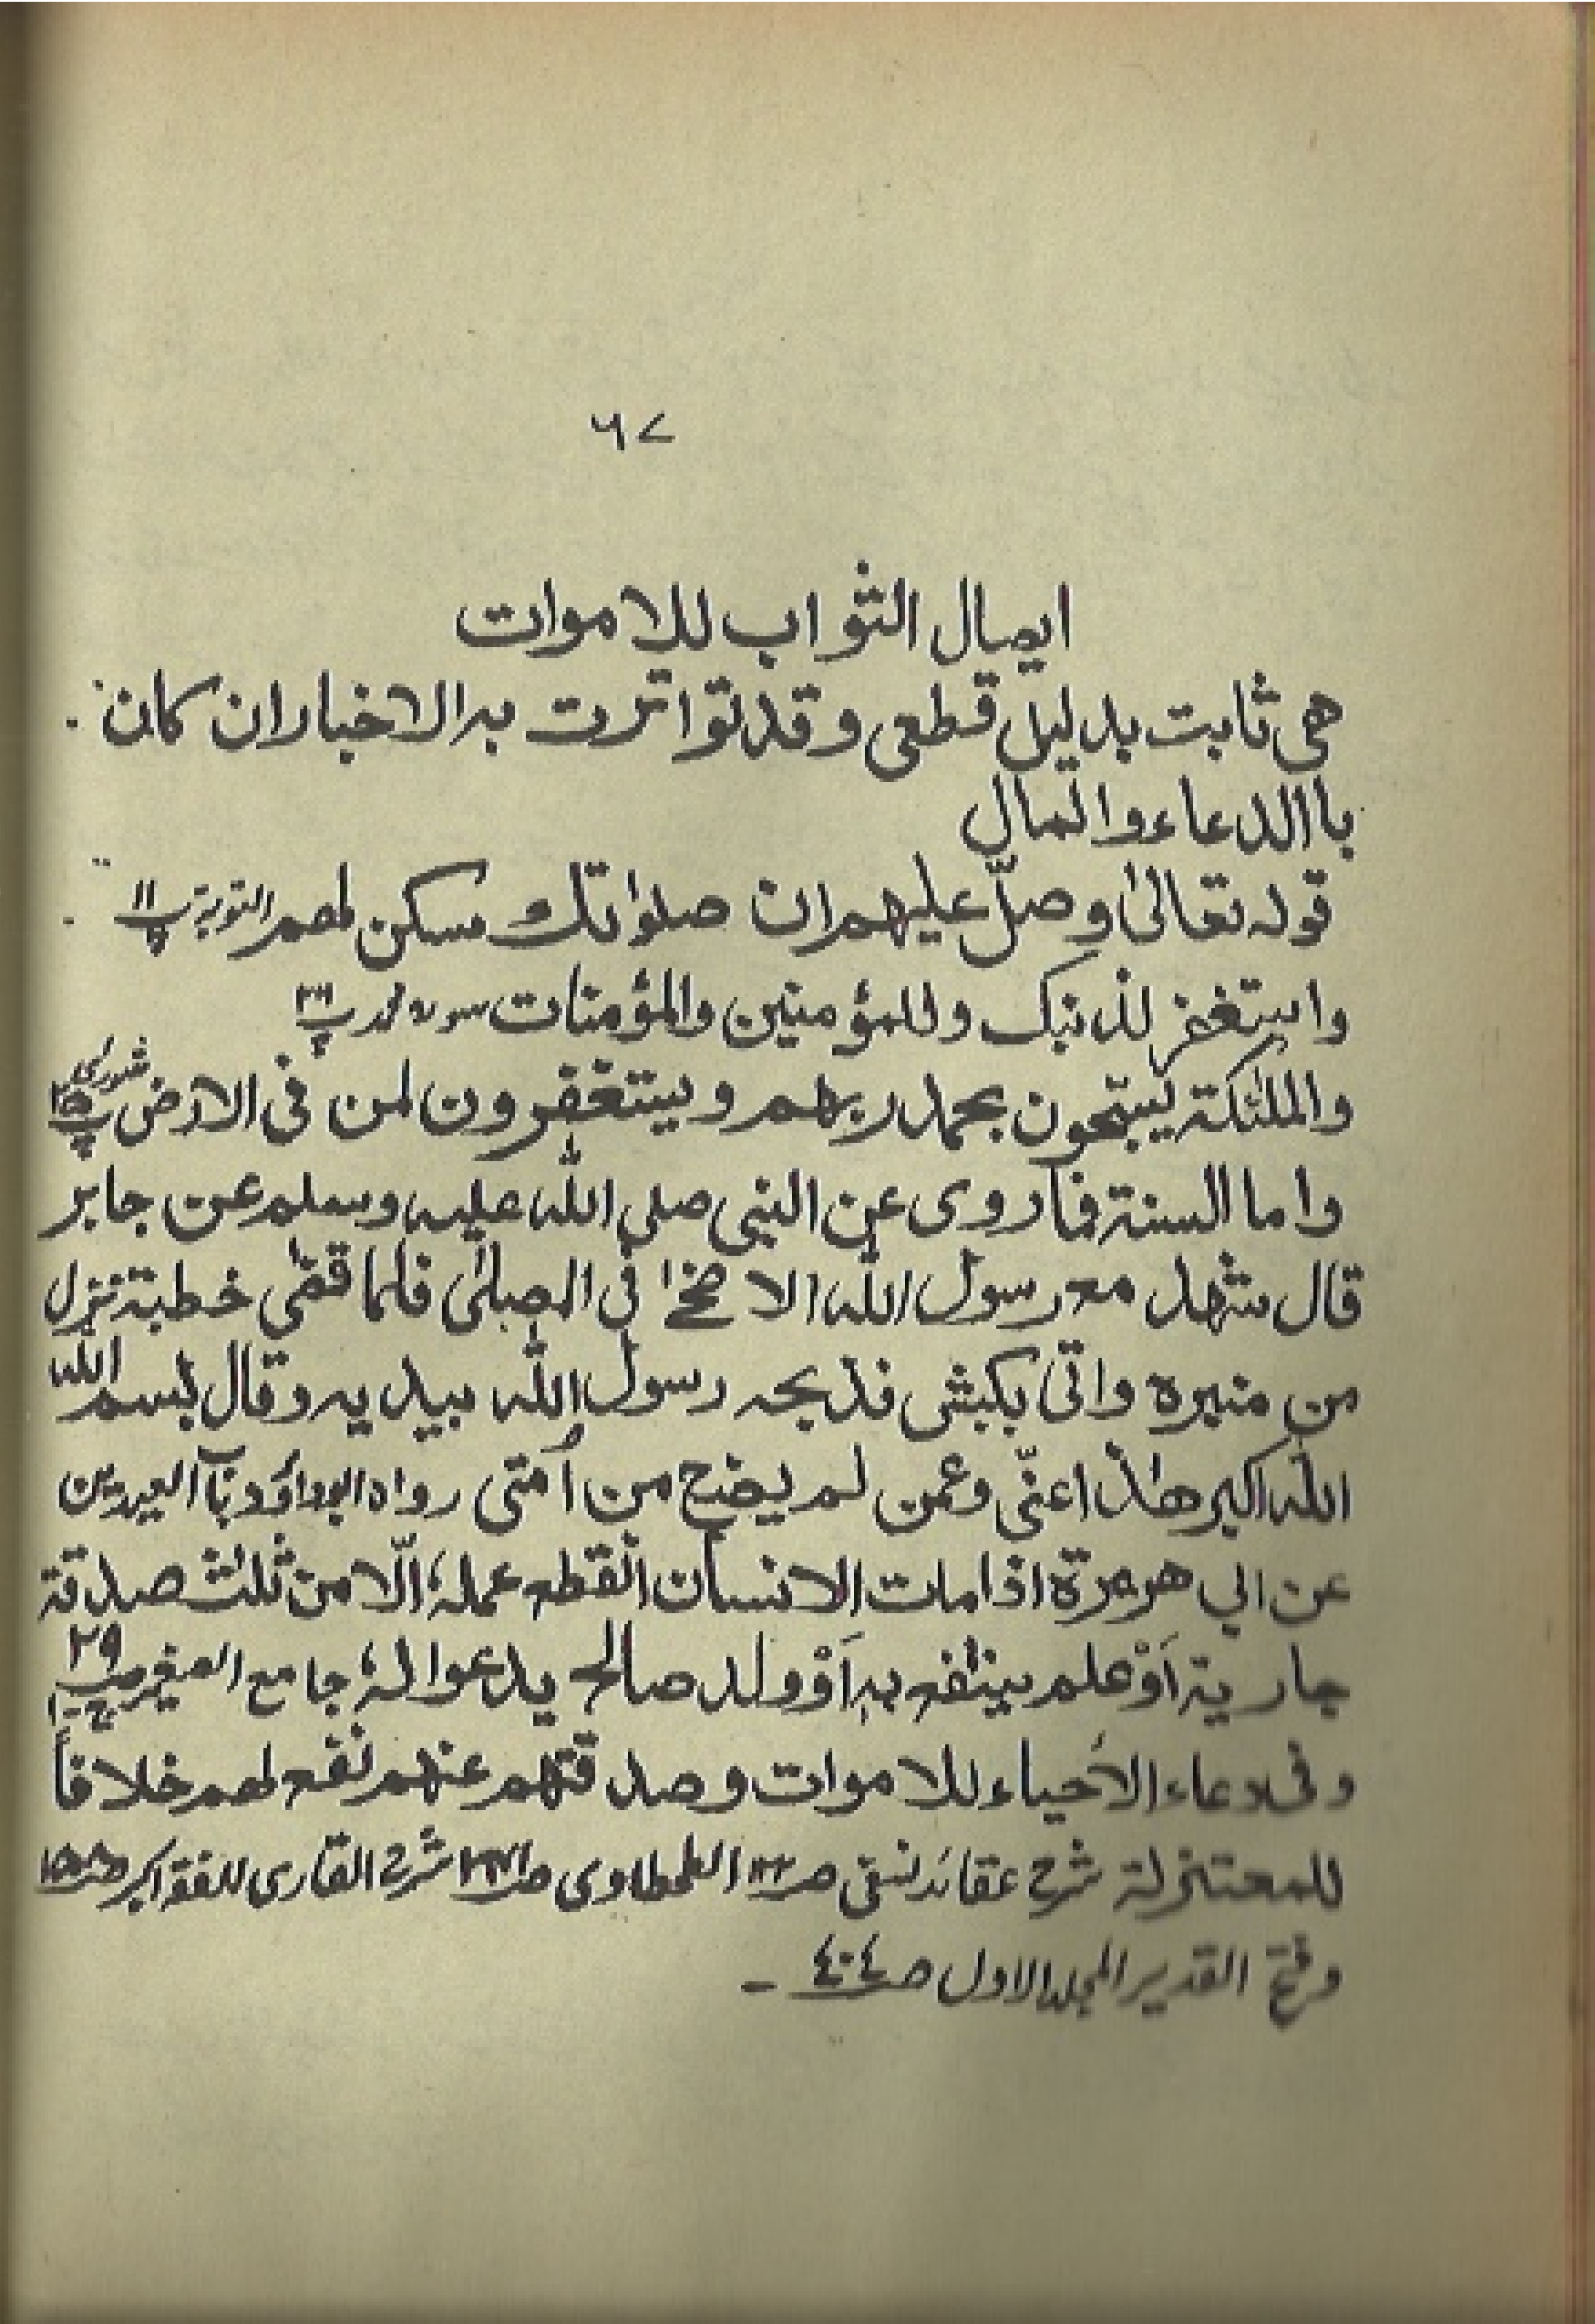 ٦٧
ايصال الثواب للاموات
هي ثابت بدليل قطعي وقد تواترت به الاخبار ان كان
باالدعاء والمال
قوله تعالىٰ وصلّ عليهم ان صلوٰتك سكن لهم التوبة پ ١١
واستغفر لذنبك وللمؤمنين والمؤمنات سورة محمد پ ٢٦
والملٰئكة يسبّحون بحمد ربهم ويستغفرون لمن فى الارض شورىٰ پ ٢٥
واما السنة فما روى عن النبى صلى الله عليه وسلم عن جابر
قال شهد مع رسول الله الاضحٰ فى المصلىٰ فلما قضٰى خطبة نزل
من منبره واتى بكبش فذبحه رسول الله بيديه وقال بسم الله
الله اكبر هٰذا عنّى وعمن لم يضح من اُمتى رواه ابوداؤد باب العيدين
عن ابي هريرة اذا مات الانسان انقطع عمله الّا من ثلٰث صدقة
جارية اَوْ علم ينتفع به اَوْ ولد صالح يدعوا له جامع الصغير صـ ٢٩ ج ١
وفى دعاء الاَحياء للاموات وصدقتهم عنهم نفع لهم خلافاً
للمعتزلة شرح عقائد نسفى صـ ١٢٢ الطحطاوى صـ شرح القارى للفقه اكبر صـ
وفتح القدير المجلد الاول صـ ٤٠٤ -